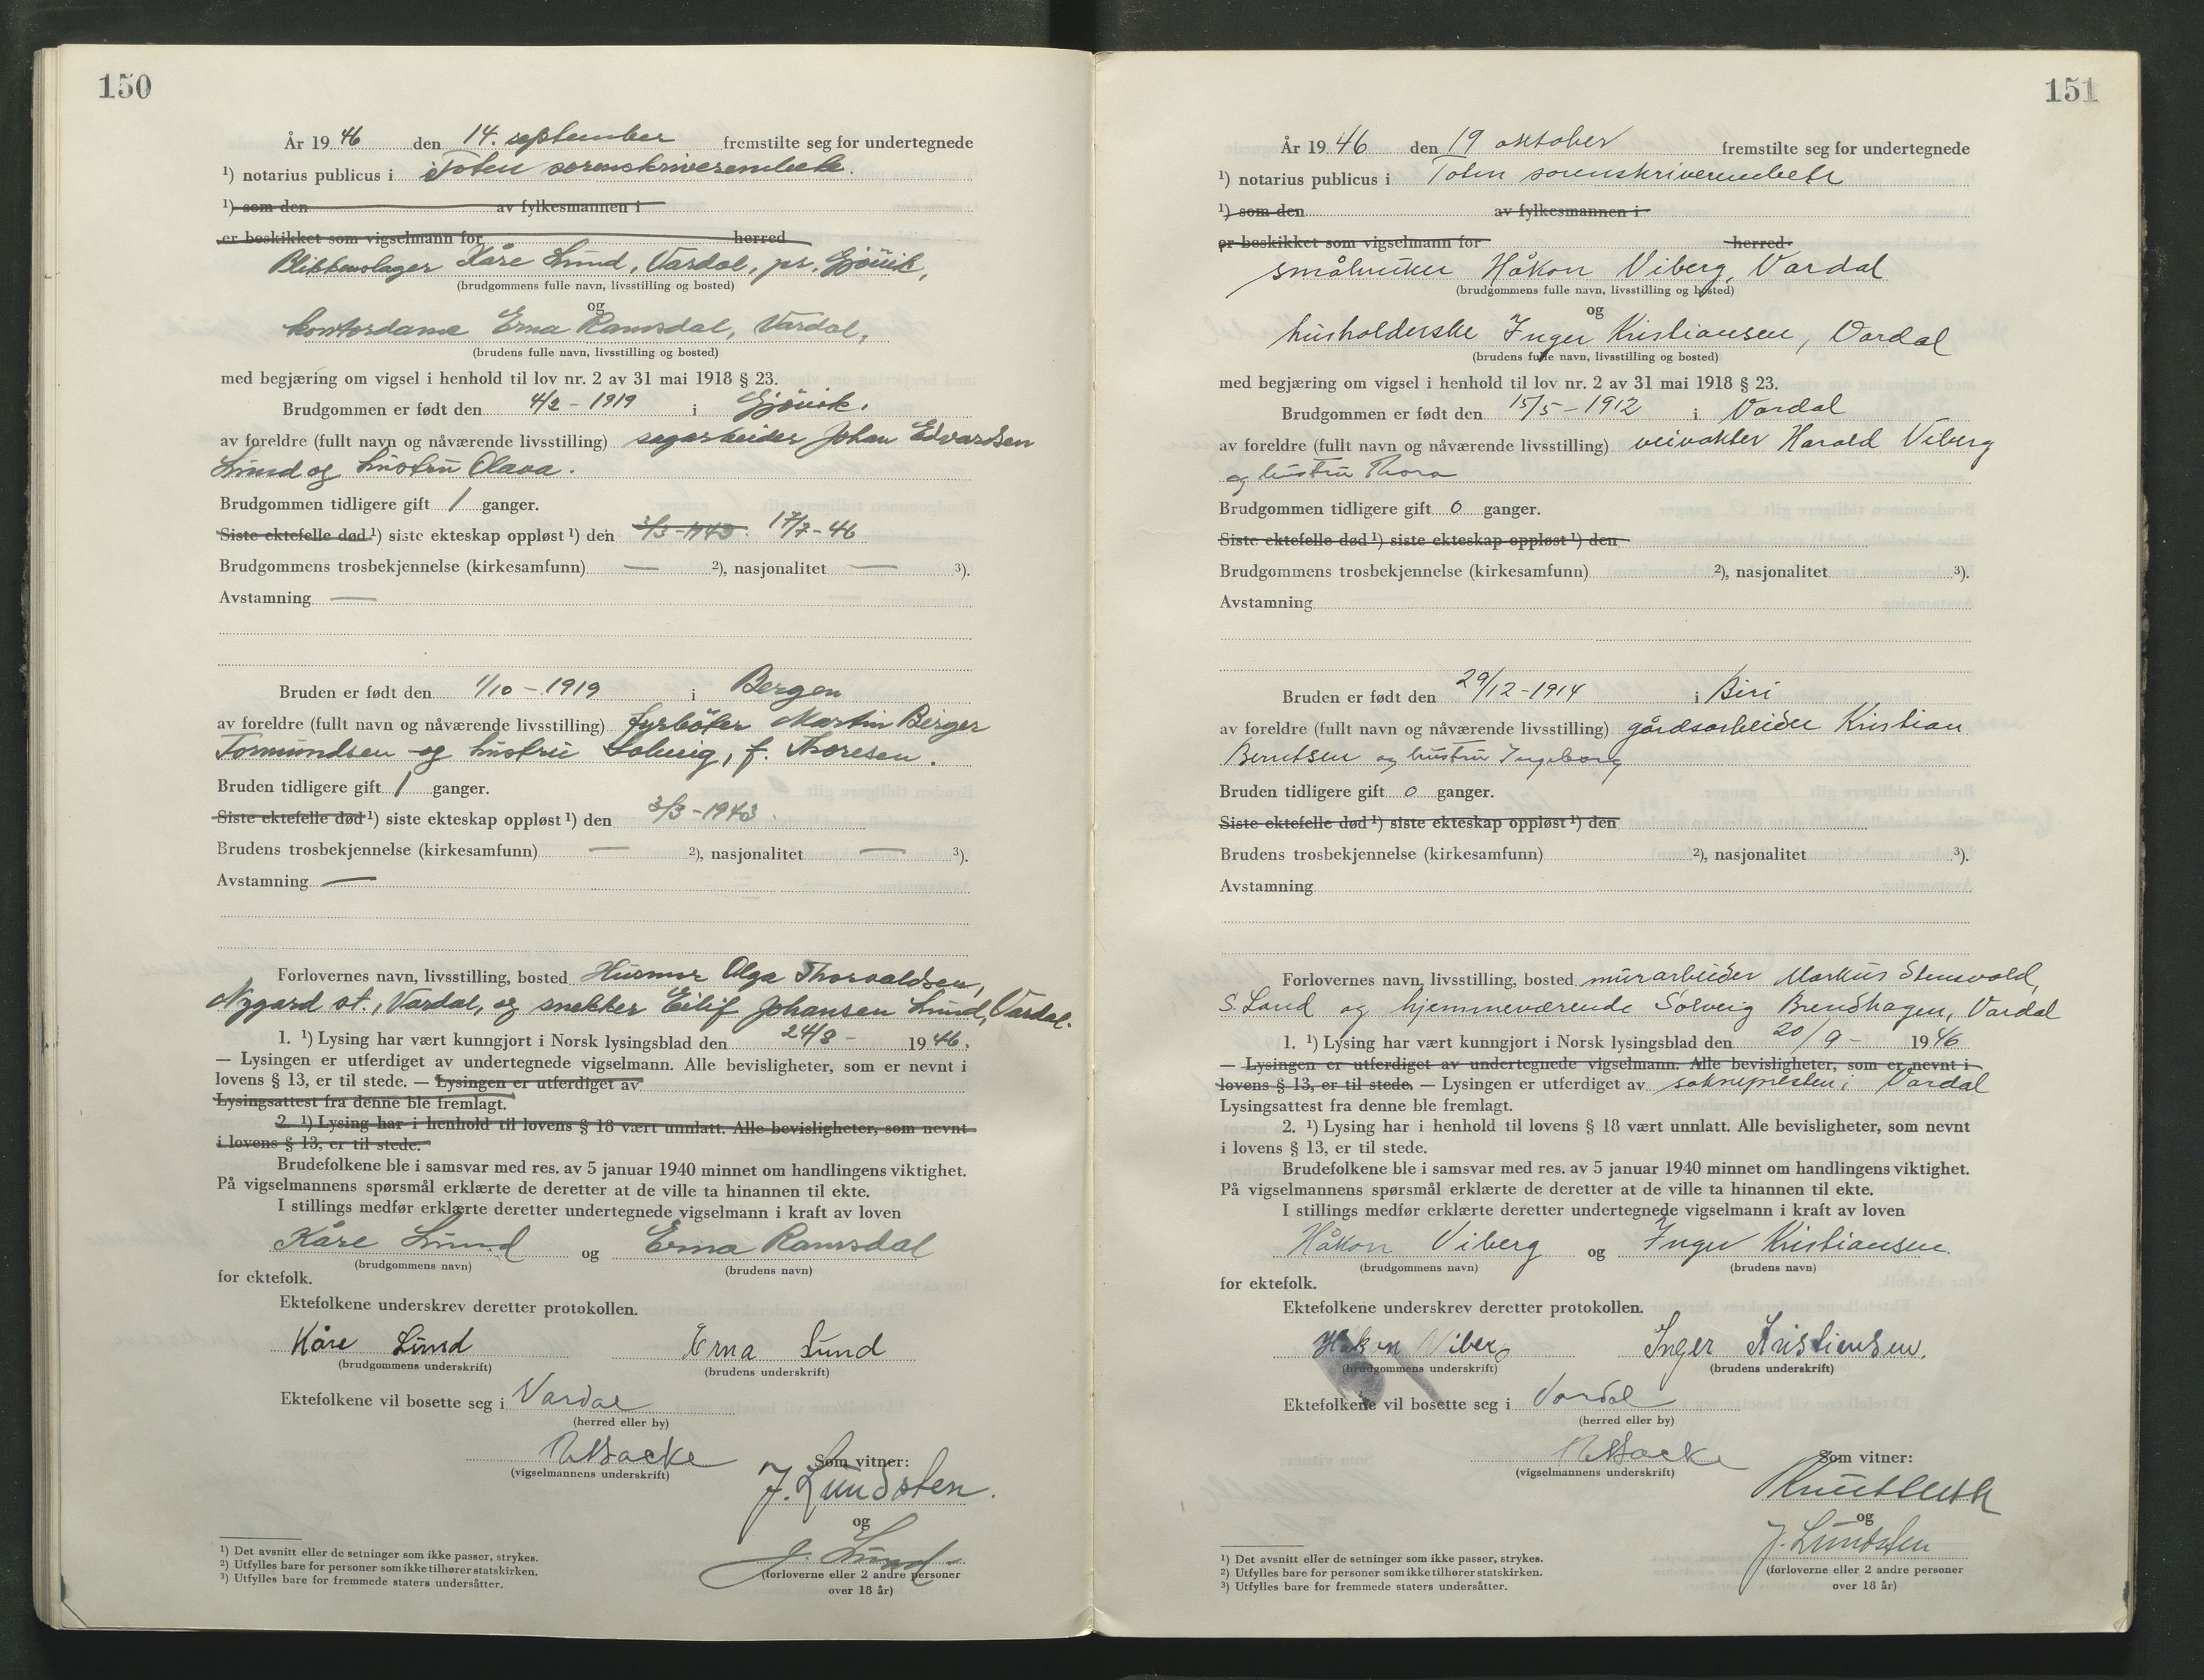 150
År 1946 den 14. september fremstilte seg for undertegnede
¹) notarius publicus i Toten sorenskriverembete.
¹) som den av fylkesmannen i
er beskikket som vigselmann for herred
Blikkenslager Kåre Lund, Vardal, pr. Gjøvik,
(brudgommens fulle navn, livsstilling og bosted)
og
kontordame Erna Ramsdal, Vardal,
(brudens fulle navn, livsstilling og bosted)
med begjæring om vigsel i henhold til lov nr. 2 av 31 mai 1918 § 23.
Brudgommen er født den 4/2 - 1919 i Gjøvik.
av foreldre (fullt navn og nåværende livsstilling) sagarbeider Johan Edvardsen
Lund og hustru Olava.
Brudgommen tidligere gift 1 ganger.
Siste ektefelle død ¹) siste ekteskap oppløst ¹) den 3/3-1943. 17/7-46
Brudgommens trosbekjennelse (kirkesamfunn) — ²), nasjonalitet — ³).
Avstamning —
Bruden er født den 1/10 - 1919 i Bergen
av foreldre (fullt navn og nåværende livsstilling) fyrbøter Martin Birger
Tormundsen og hustru Solveig, f. Thoresen.
Bruden tidligere gift 1 ganger.
Siste ektefelle død ¹) siste ekteskap oppløst ¹) den 3/3-1943.
Brudens trosbekjennelse (kirkesamfunn) — ²), nasjonalitet — ³).
Avstamning —
Forlovernes navn, livsstilling, bosted Husmor Olga Thorvaldsen,
Nygard st., Vardal, og snekker Eilif Johansen Lund, Vardal.
1. ¹) Lysing har vært kunngjort i Norsk lysingsblad den 24/8 - 1946.
— Lysingen er utferdiget av undertegnede vigselmann. Alle bevisligheter, som er nevnt i
lovens § 13, er til stede. — Lysingen er utferdiget av
Lysingsattest fra denne ble fremlagt.
2. ¹) Lysing har i henhold til lovens § 18 vært unnlatt. Alle bevisligheter, som nevnt
i lovens § 13, er til stede.
Brudefolkene ble i samsvar med res. av 5 januar 1940 minnet om handlingens viktighet.
På vigselmannens spørsmål erklærte de deretter at de ville ta hinannen til ekte.
I stillings medfør erklærte deretter undertegnede vigselmann i kraft av loven
Kåre Lund og Erna Ramsdal
(brudgommens navn) (brudens navn)
for ektefolk.
Ektefolkene underskrev deretter protokollen.
Kåre Lund Erna Lund
(brudgommens underskrift) (brudens underskrift)
Ektefolkene vil bosette seg i Vardal
(herred eller by)
Som vitner:
(vigselmannens underskrift)
J. Lundsten.
og
J. Lund
(forloverne eller 2 andre personer
over 18 år)
¹) Det avsnitt eller de setninger som ikke passer, strykes.
²) Utfylles bare for personer som ikke tilhører statskirken.
³) Utfylles bare for fremmede staters undersåtter.
151
År 1946 den 19 oktober fremstilte seg for undertegnede
¹) notarius publicus i Toten sorenskriverembete
¹) som den av fylkesmannen i
er beskikket som vigselmann for herred
småbruker Håkon Viberg, Vardal
(brudgommens fulle navn, livsstilling og bosted)
og
husholderske Inger Kristiansen, Vardal
(brudens fulle navn, livsstilling og bosted)
med begjæring om vigsel i henhold til lov nr. 2 av 31 mai 1918 § 23.
Brudgommen er født den 15/5 - 1912 i Vardal
av foreldre (fullt navn og nåværende livsstilling) veivokter Harald Viberg
og hustru Thora
Brudgommen tidligere gift 0 ganger.
Siste ektefelle død ¹) siste ekteskap oppløst ¹) den
Brudgommens trosbekjennelse (kirkesamfunn) ²), nasjonalitet ³).
Avstamning
Bruden er født den 29/12-1914 i Biri
av foreldre (fullt navn og nåværende livsstilling) gårdsarbeider Kristian
Berntsen og hustru Ingeborg
Bruden tidligere gift 0 ganger.
Siste ektefelle død ¹) siste ekteskap oppløst ¹) den
Brudens trosbekjennelse (kirkesamfunn) ²), nasjonalitet ³).
Avstamning
Forlovernes navn, livsstilling, bosted murarbeider Markus Stensvold,
S. Land og hjemmeværende Solveig Brendhagen, Vardal
1. ¹) Lysing har vært kunngjort i Norsk lysingsblad den 20/9 - 1946
— Lysingen er utferdiget av undertegnede vigselmann. Alle bevisligheter, som er nevnt i
lovens § 13, er til stede. — Lysingen er utferdiget av sokneprestens i Vardal
Lysingsattest fra denne ble fremlagt.
2. ¹) Lysing har i henhold til lovens § 18 vært unnlatt. Alle bevisligheter, som nevnt
i lovens § 13, er til stede.
Brudefolkene ble i samsvar med res. av 5 januar 1940 minnet om handlingens viktighet.
På vigselmannens spørsmål erklærte de deretter at de ville ta hinannen til ekte.
I stillings medfør erklærte deretter undertegnede vigselmann i kraft av loven
Håkon Viberg og Inger Kristiansen.
(brudgommens navn) (brudens navn)
for ektefolk.
Ektefolkene underskrev deretter protokollen.
Håkon Viberg Inger Kristiansen.
(brudgommens underskrift) (brudens underskrift)
Ektefolkene vil bosette seg i Vardal
(herred eller by)
Som vitner:
(vigselmannens underskrift)
og
J. Lundsten
(forloverne eller 2 andre personer
over 18 år)
¹) Det avsnitt eller de setninger som ikke passer, strykes.
²) Utfylles bare for personer som ikke tilhører statskirken.
³) Utfylles bare for fremmede staters undersåtter.